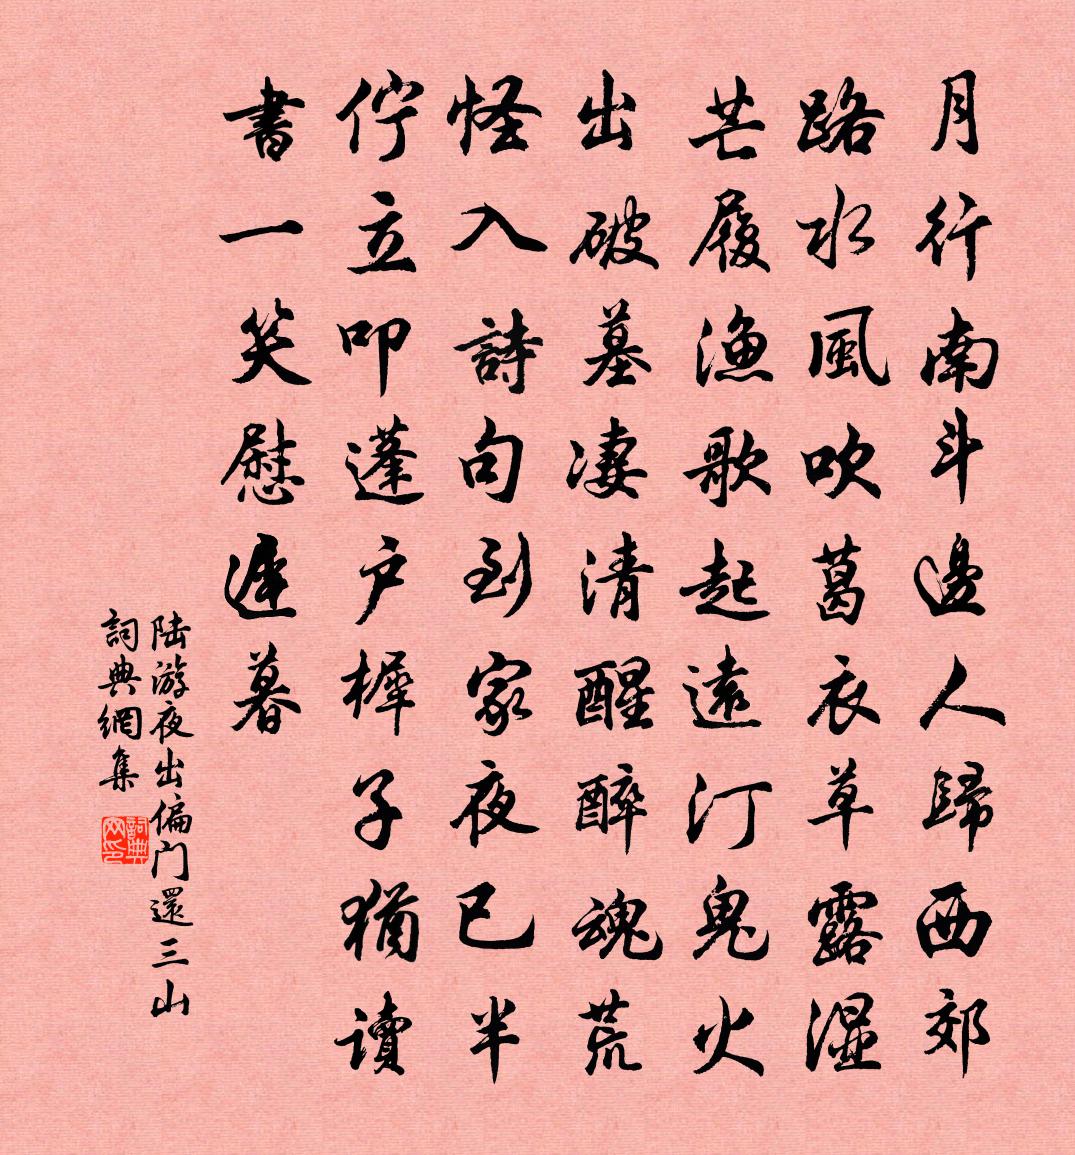 月行南斗邊人歸西郊
路水風吹葛衣草露湿
芒履漁歌起遠汀鬼火
出破墓凄清醒醉魂荒
怪入詩句到家夜已半
佇立叩蓬户稺子猶讀
書一笑慰遲暮
陆游夜出偏门還三山
詞典網集
詞典网印